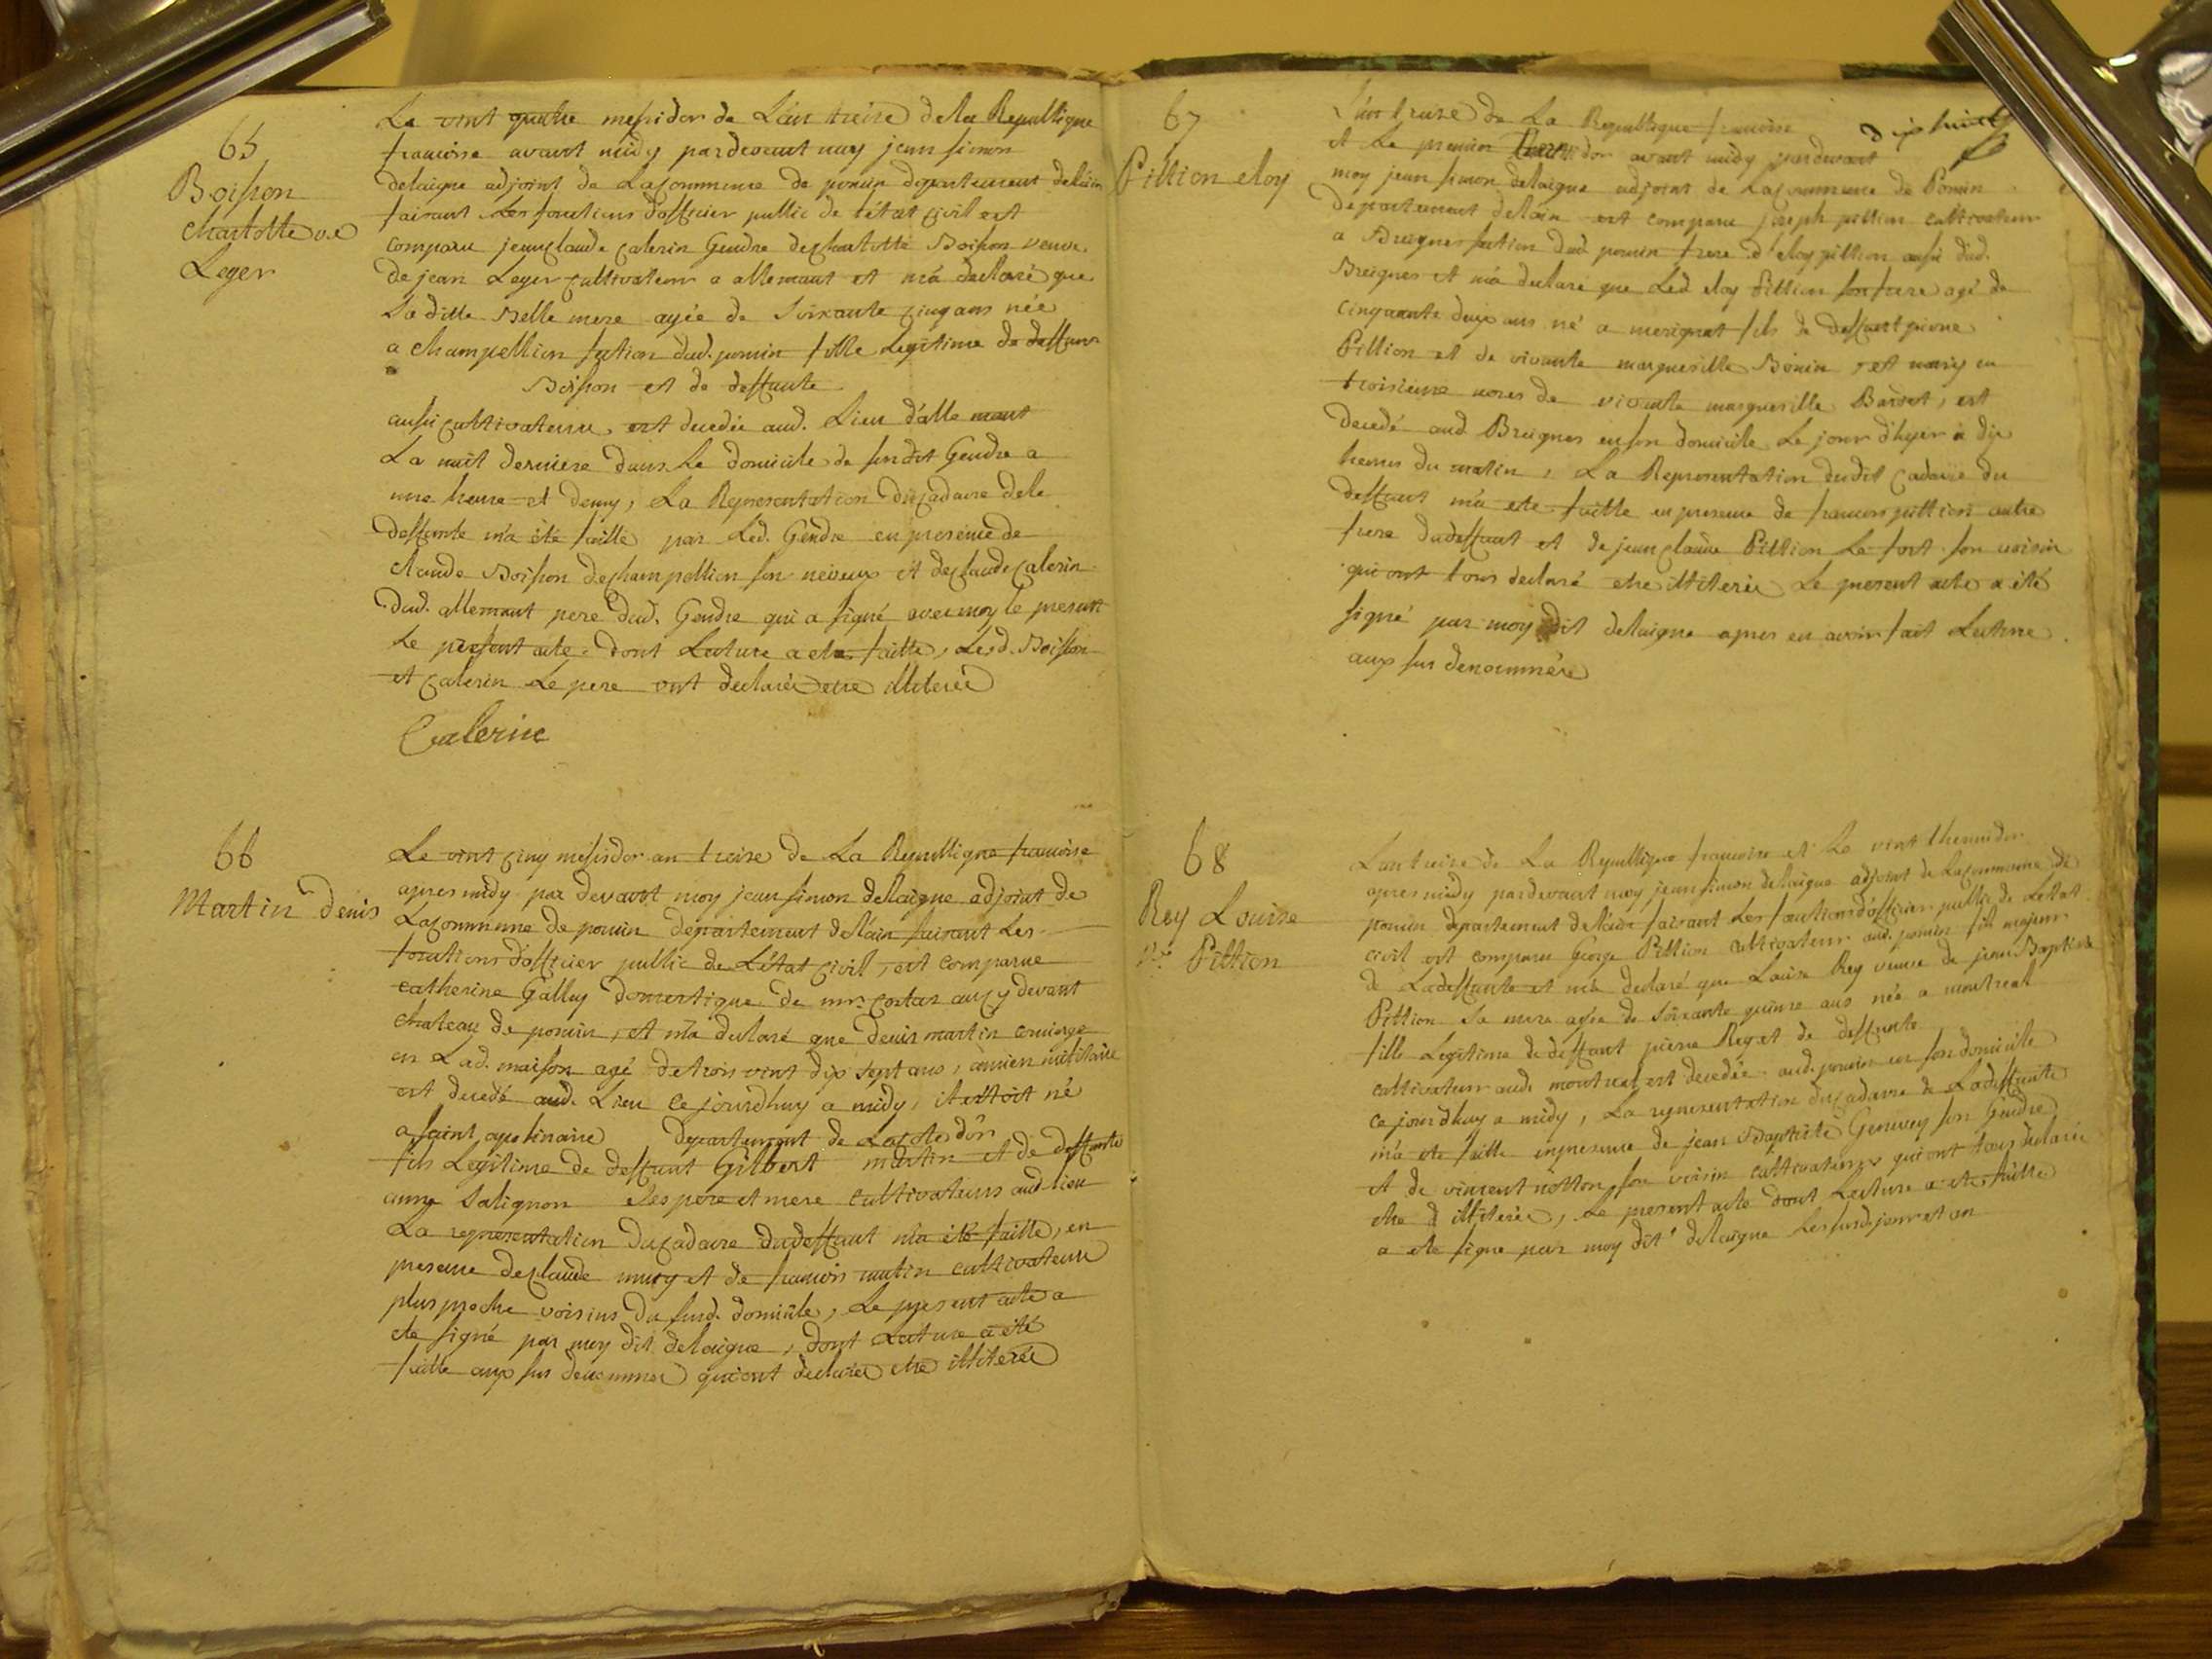 65
Boisson
charlotte ve
Leger
Le vint quatre messidor de L'an treise dela Republique
francoise avant midy pardevant moy jean simon
delaigue adjoint de La commune de poncin departement delain
faisant Les fonctions d'officier public de l'état civil est
comparu jean claude calerin Gendre de charlotte Boisson veuve
de jean Leger cultivateur a allemant et m'a declaré que
La ditte Belle mere agée de soixante cinq ans née
a champellion section dud. poncin fille Legitime de deffunt
Boisson et de deffunte
aussi cultivateurs est decedée aud. Lieu d'allemant
La nuit derniere dans Le domicile de sondit Gendre a
une heure et demy, La Representation du cadavre dela
deffunte m'a été faitte par Led. Gendre en presence de
claude Boisson de champellion son neveux et de claude calerin
dud. allemant pere dud. Gendre qui a signé avec moy le present
Le present acte dont Lecture a ete faitte, Lesd. Boisson
et calerin Le pere ont declarée etre illiterée
Calerin
66
Martin denis
Le vint cinq messidor an treise de La Republique francoise
apres midy par devant moy jean simon delaigue adjoint de
La commune de poncin departement delain faisant Les
fonctions d'officier public de L'état civil, est comparue
catherine Galley domestique de mr. costar au cy devant
chateau de poncin, et m'a declaré que denis martin concierge
en Lad. maison agé de trois vint dix sept ans, ancien militaire
est decedé aud. Lieu ce jourdhuy a midy, il estoit né
a saint apolinaire departement de La cote d'or
fils Legitime de deffunt Gilbert martin et de deffunte
anne Salignon ses pere et mere cultivateurs aud. lieu
La representation du cadavre du deffunt m'a été faitte, en
presence de claude mury et de francois mutin cultivateurs
plus proche voisins du susd. domicile, Le present acte a
ete signé par moy dit delaigue, dont Lecture a été
faitte aux sus denommés qui ont declarée etre illiterée
67
Pittion eloy
L'an treize de La Republique francoise dix huit
et Le premier thermidor avant midy pardevant
moy jean simon delaigue adjoint de La commune de Poncin
departement delain est comparu joseph pittion cultivateur
a Breignes section dud poncin frere d'eloy pittion aussi dud.
Breignes et m'a declaré que Led eloy Pittion son frere agé de
cinquante deux ans né a merignat fils de deffunt pierre
Pittion et de vivante marguerille Bonin et mary en
troisieme noces de vivante marguerille Bardet, est
decedé aud Breignes en son domicile Le jour d'hyer a dix
heures du matin, La Representation dudit cadavre du
deffunt m'a ete faitte en presence de francois pittion autre
frere du deffunt et de jean claude Pittion Le fort son voisin
qui ont tous declaré etre illiterée Le present acte a été
signé par moy dit delaigue apres en avoir fait Lecture
aux sus denommée
68
Rey Louise
ve Pittion
L'an treize de La Republique francoise et Le vint thermidor
apres midy pardevant moy jean simon delaigue adjoint de La commune de
poncin departement delain faisant Les fonctions d'officier public de Letat
civil est comparu George Pittion cultivateur aud. poncin fils majeur
de La deffunte et m'a declaré que Louise Rey veuve de jean Baptiste
Pittion sa mere agée de soixante quinze ans née a montreal
fille Legitime de deffunt pierre Rey et de deffunte
cultivateur aud. montreal est decedée aud. poncin en son domicile
ce jourdhuy a midy, La representation du cadavre de La deffunte
m'a ete faitte en presence de jean Baptiste Genevey son Gendre
et de vincent notton son voisin cultivateurs qui ont tous declarée
etre illiterée, Le present acte dont Lecture a ete faitte
a ete signe par moy dit delaigue Les susd. jour et an